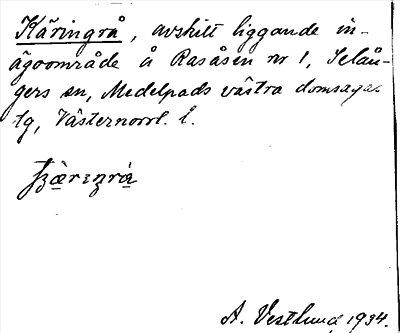 Käringrå, avskilt liggande in-
ägoområde å Rasåsen nr 1, Selån-
gers sn, Medelpads västra domsagas
tg, Västernorrl. l.
A. Vestlund 1934.